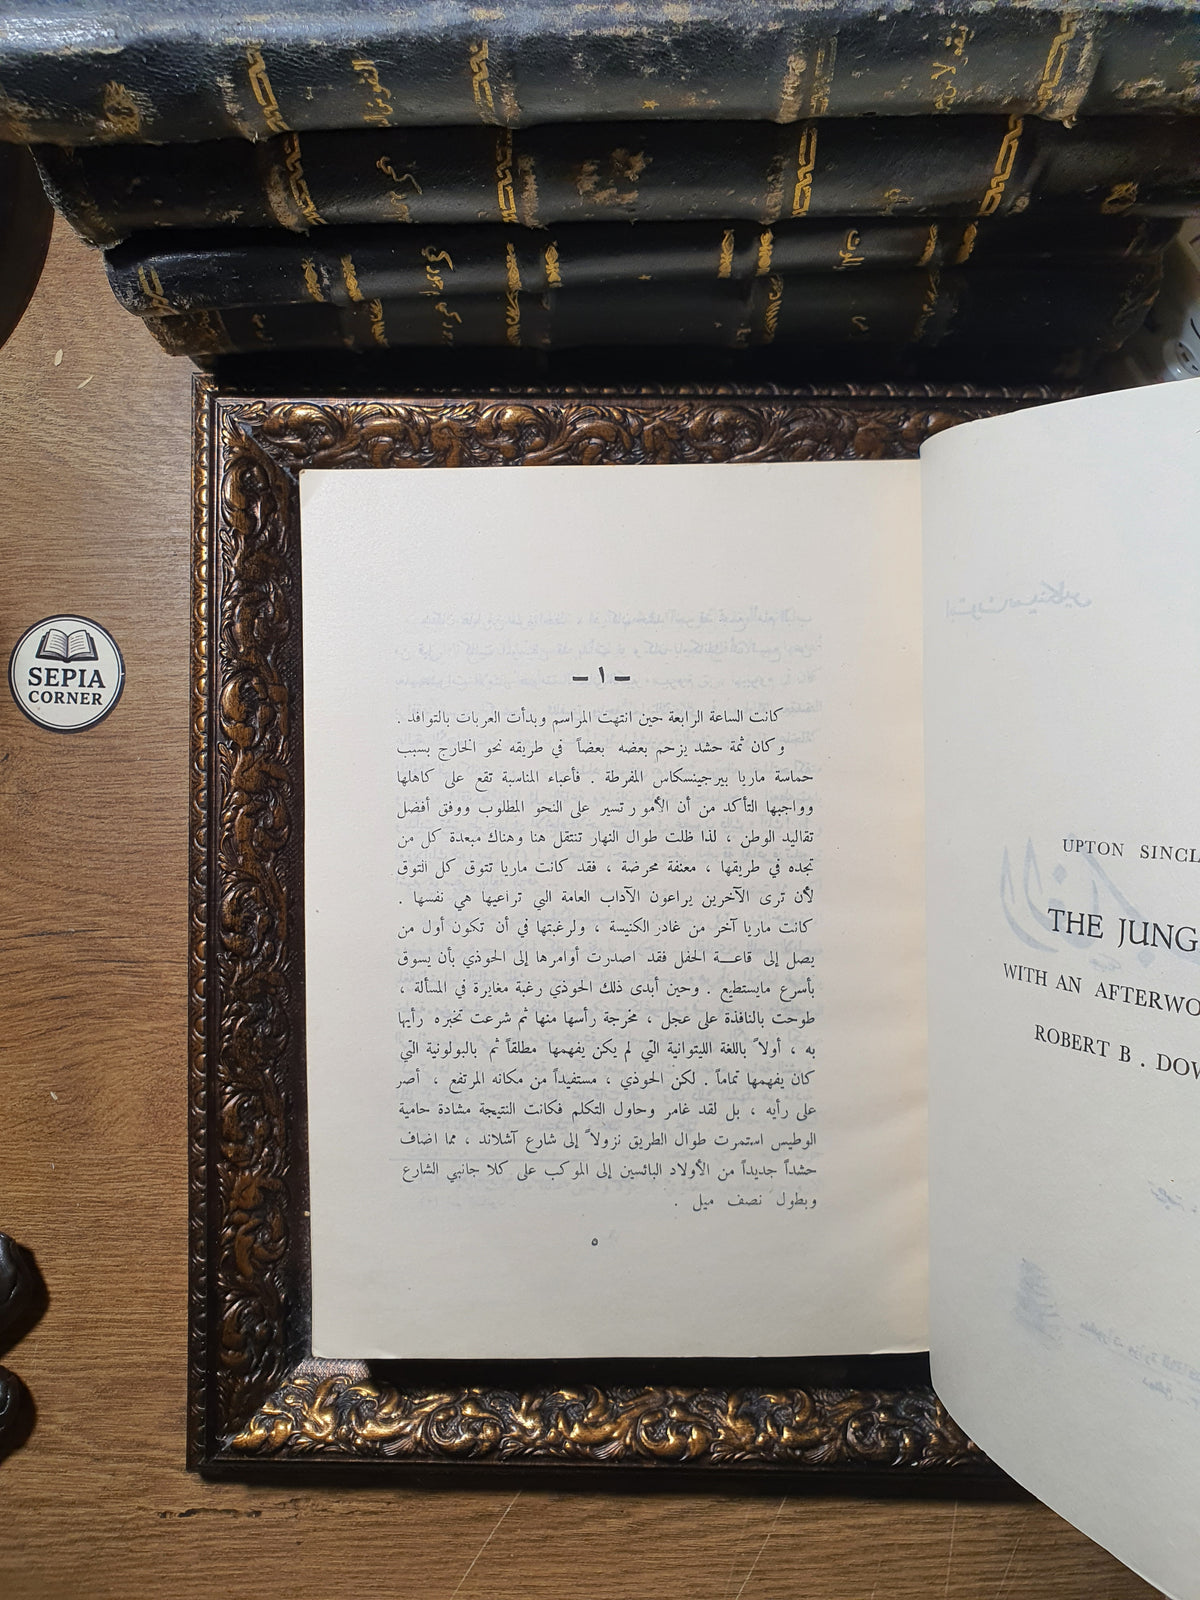 SEPIA
CORNER
– ١ –
كانت الساعة الرابعة حين انتهت المراسم وبدأت العربات بالتوافد .
وكان ثمة حشد يزحم بعضه بعضاً في طريقه نحو الخارج بسبب
حماسة ماريا بيرجينسكاس المفرطة . فأعباء المناسبة تقع على كاهلها
وواجبها التأكد من أن الأمور تسير على النحو المطلوب ووفق أفضل
تقاليد الوطن ، لذا ظلت طوال النهار تنتقل هنا وهناك مبعدة كل من
تجده في طريقها ، معنفة محرضة ، فقد كانت ماريا تتوق كل التوق
لأن ترى الآخرين يراعون الآداب العامة التي تراعيها هي نفسها .
كانت ماريا آخر من غادر الكنيسة ، ولرغبتها في أن تكون أول من
يصل إلى قاعة الحفل فقد اصدرت أوامرها إلى الحوذي بأن يسوق
بأسرع مايستطيع . وحين أبدى ذلك الحوذي رغبة مغايرة في المسألة ،
طوحت بالنافذة على عجل ، مخرجة رأسها منها ثم شرعت تخبره رأيها
به ، أولاً باللغة الليتوانية التي لم يكن يفهمها مطلقاً ثم بالبولونية التي
كان يفهمها تماماً . لكن الحوذي ، مستفيداً من مكانه المرتفع ، أصر
على رأيه ، بل لقد غامر وحاول التكلم فكانت النتيجة مشادة حامية
الوطيس استمرت طوال الطريق نزولاً إلى شارع آشلاند ، مما اضاف
حشداً جديداً من الأولاد البائسين إلى الموكب على كلا جانبي الشارع
وبطول نصف ميل .
٥
UPTON SINCL
THE JUNG
WITH AN AFTERWO
ROBERT B . DOW